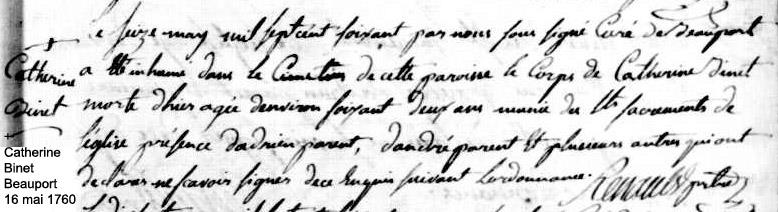 Le seize may mil septcent soixant par nous sous signé Curé de Beauport
Catherine
Binet
a été inhumé dans le Cimetiere de cette paroisse le Corps de Catherine Binet
morte d'hier agée denviron soixant deux ans munie des Sts sacrements de
l'église présence dadrien parent, dandré parent Et plusieurs autres qui ont
declarés ne scavoir signer de ce Enquis suivant Lordonnance.
Catherine
Binet
Beauport
16 mai 1760